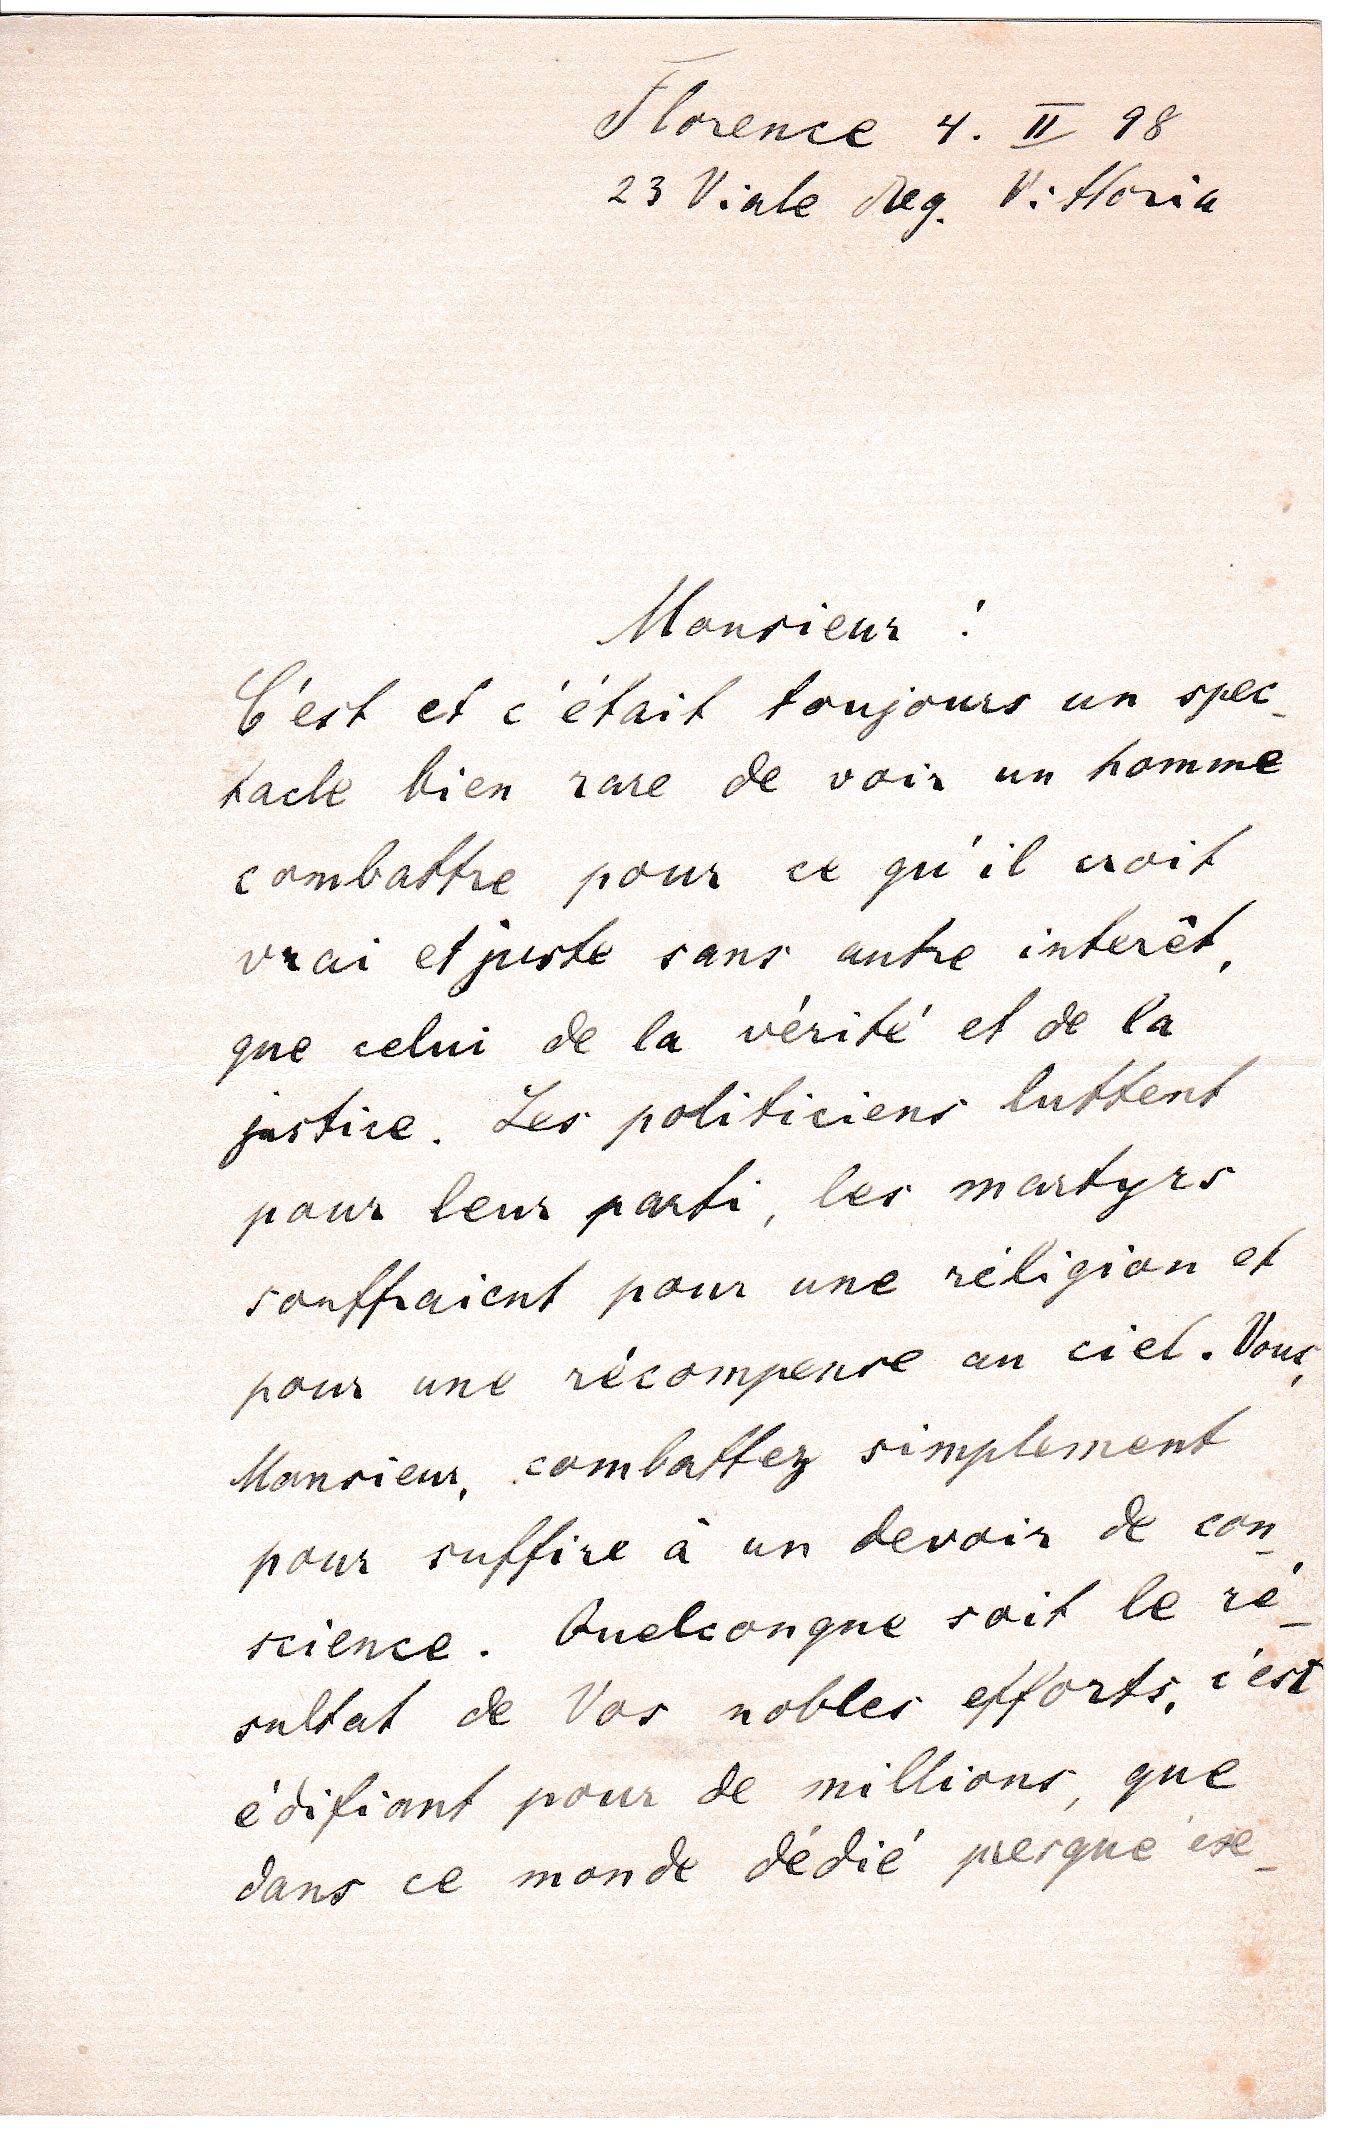 Florence 4. II 98
23 Viale Reg. Vittoria
Monsieur !
C'est et c'était toujours un spec-
tacle bien rare de voir un homme
combattre pour ce qu'il croit
vrai et juste sans autre interêt,
que celui de la vérité et de la
justice. Les politiciens luttent
pour leur parti, les martyrs
souffraient pour une réligion et
pour une récompense au ciel. Vous,
Monsieur, combattez simplement
pour suffire à un devoir de con-
science. Quelconque soit le ré-
sultat de Vos nobles efforts, c'est
édifiant pour de millions, que
dans ce monde dédié presque exe-